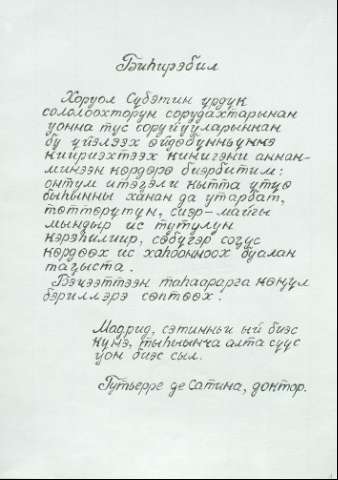 Биһирэбил
Хоруол Субэтин үрдүк
солоloохторун сорудахтарынан
уонна тус соруйууларыннан
бу үйэлээх өйдөбүнньүккэ
киириэхтээх кинигэни аннан-
минээн көрдөрө биэрбитим:
онтум итэҕэли кытта утуо
быһынны ханан да утарбат,
төттөрүтүн, сиэр-майгы
мындыр ис тутулун
кэрэһилиир, сөбүгэр соҕус
көрдөөх ис хаһоонноох буолан
таҕыста.
Бэчээттээн таһаарарга көҥүл
бэриллэрэ сөптөөх.
Мадрид, сэтинньи ый биэс
күнэ, тыһыынча алта сүүс
уон биэс сыл.
Гутьерре де Сатина, доктор.